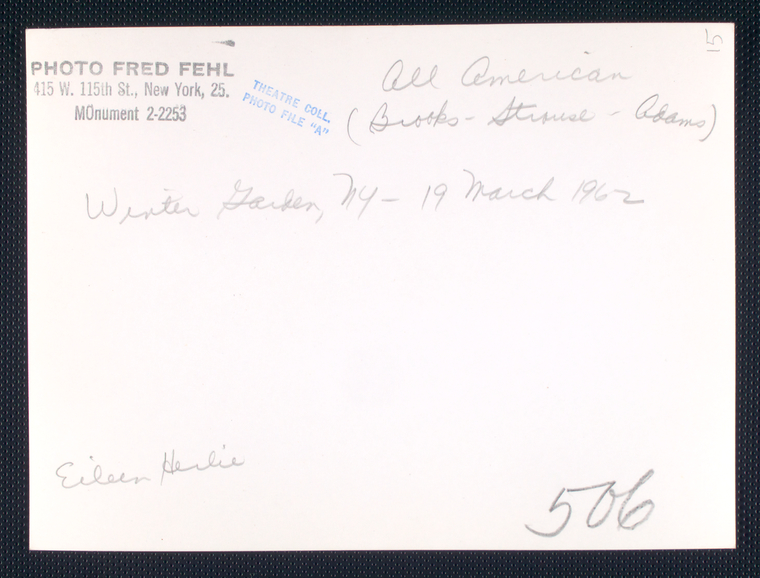 PHOTO FRED FEHL
415 W. 115th St., New York, 25.
MOnument 2-2253
THEATRE COLL.
PHOTO FILE "A"
All American
(Brooks - Strouse - Adams)
5
Winter Garden, NY - 19 March 1962
Eileen Herlie
506